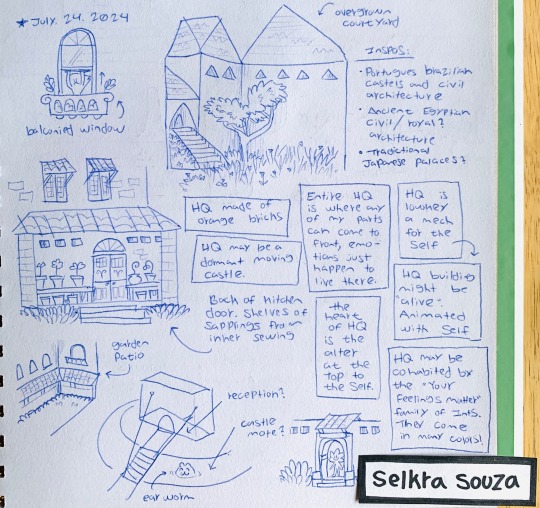 ★ July. 24. 2024
balconied window
overgrown
courtyard
Inspos:
• Portugues brazilian
Castels and civil
architecture
• Ancient Egyptian
Civil / royal?
architecture
• Traidicional
Japanese palaces?
HQ made of
orange brichs
HQ may be a
dormant moving
castle.
Entire HQ
is where any
of my parts
can come to
front, emo-
tions just
happen to
live there.
HQ is
lowhey
a mech
for the
Self
HQ building
might be
"alive".
Animated
with Self
Bach of hitchen
door. Shelves of
Sapplings from
inner sewing
the
heart
of HQ
is the
alter
at the
top to
the Self.
HQ may be
cohabited by
the "Your
Feelings matter"
family of Ints.
They come
in many colors!
garden
patio
reception?
castle
mote?
ear worm
Selkra Souza